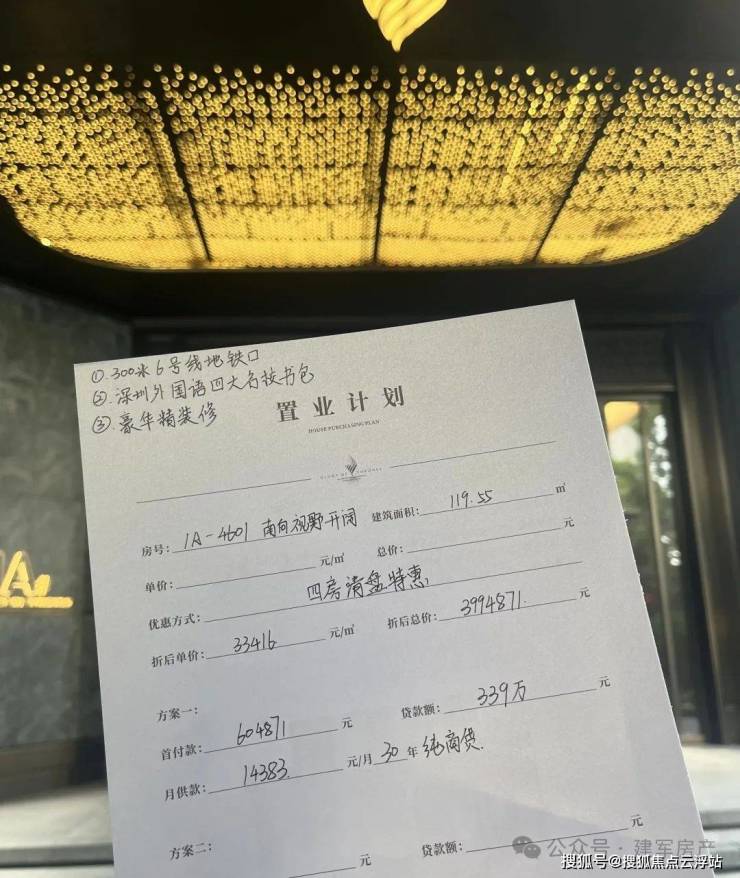 ①.300米6号线地铁口
②.深圳外国语四大名校书包
③.豪华精装修
置业计划
HOUSE PURCHASING PLAN
房号: 1A-4601 南向视野开阔 建筑面积: 119.55 ㎡
单价: 元/㎡ 总价: 元
优惠方式: 四房清盘特惠
折后单价: 33416 元/㎡ 折后总价: 3994871. 元
方案一:
首付款: 604871 元 贷款额: 339万 元
月供款: 14383 元/月 30 年 纯商贷.
方案二:
元 贷款额: 元
A
公众号·建军房产
搜狐号@搜狐焦点云浮站